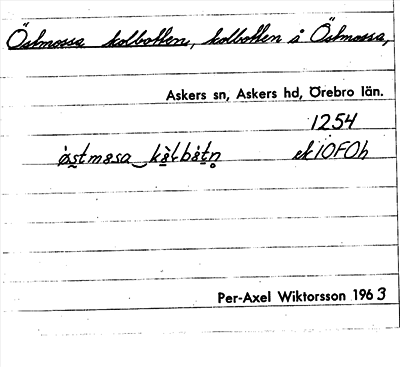 Östmossa kolbotten, kolbotten å Östmossa,
Askers sn, Askers hd, Örebro län.
1254
ek 10F0h
Per-Axel Wiktorsson 1963